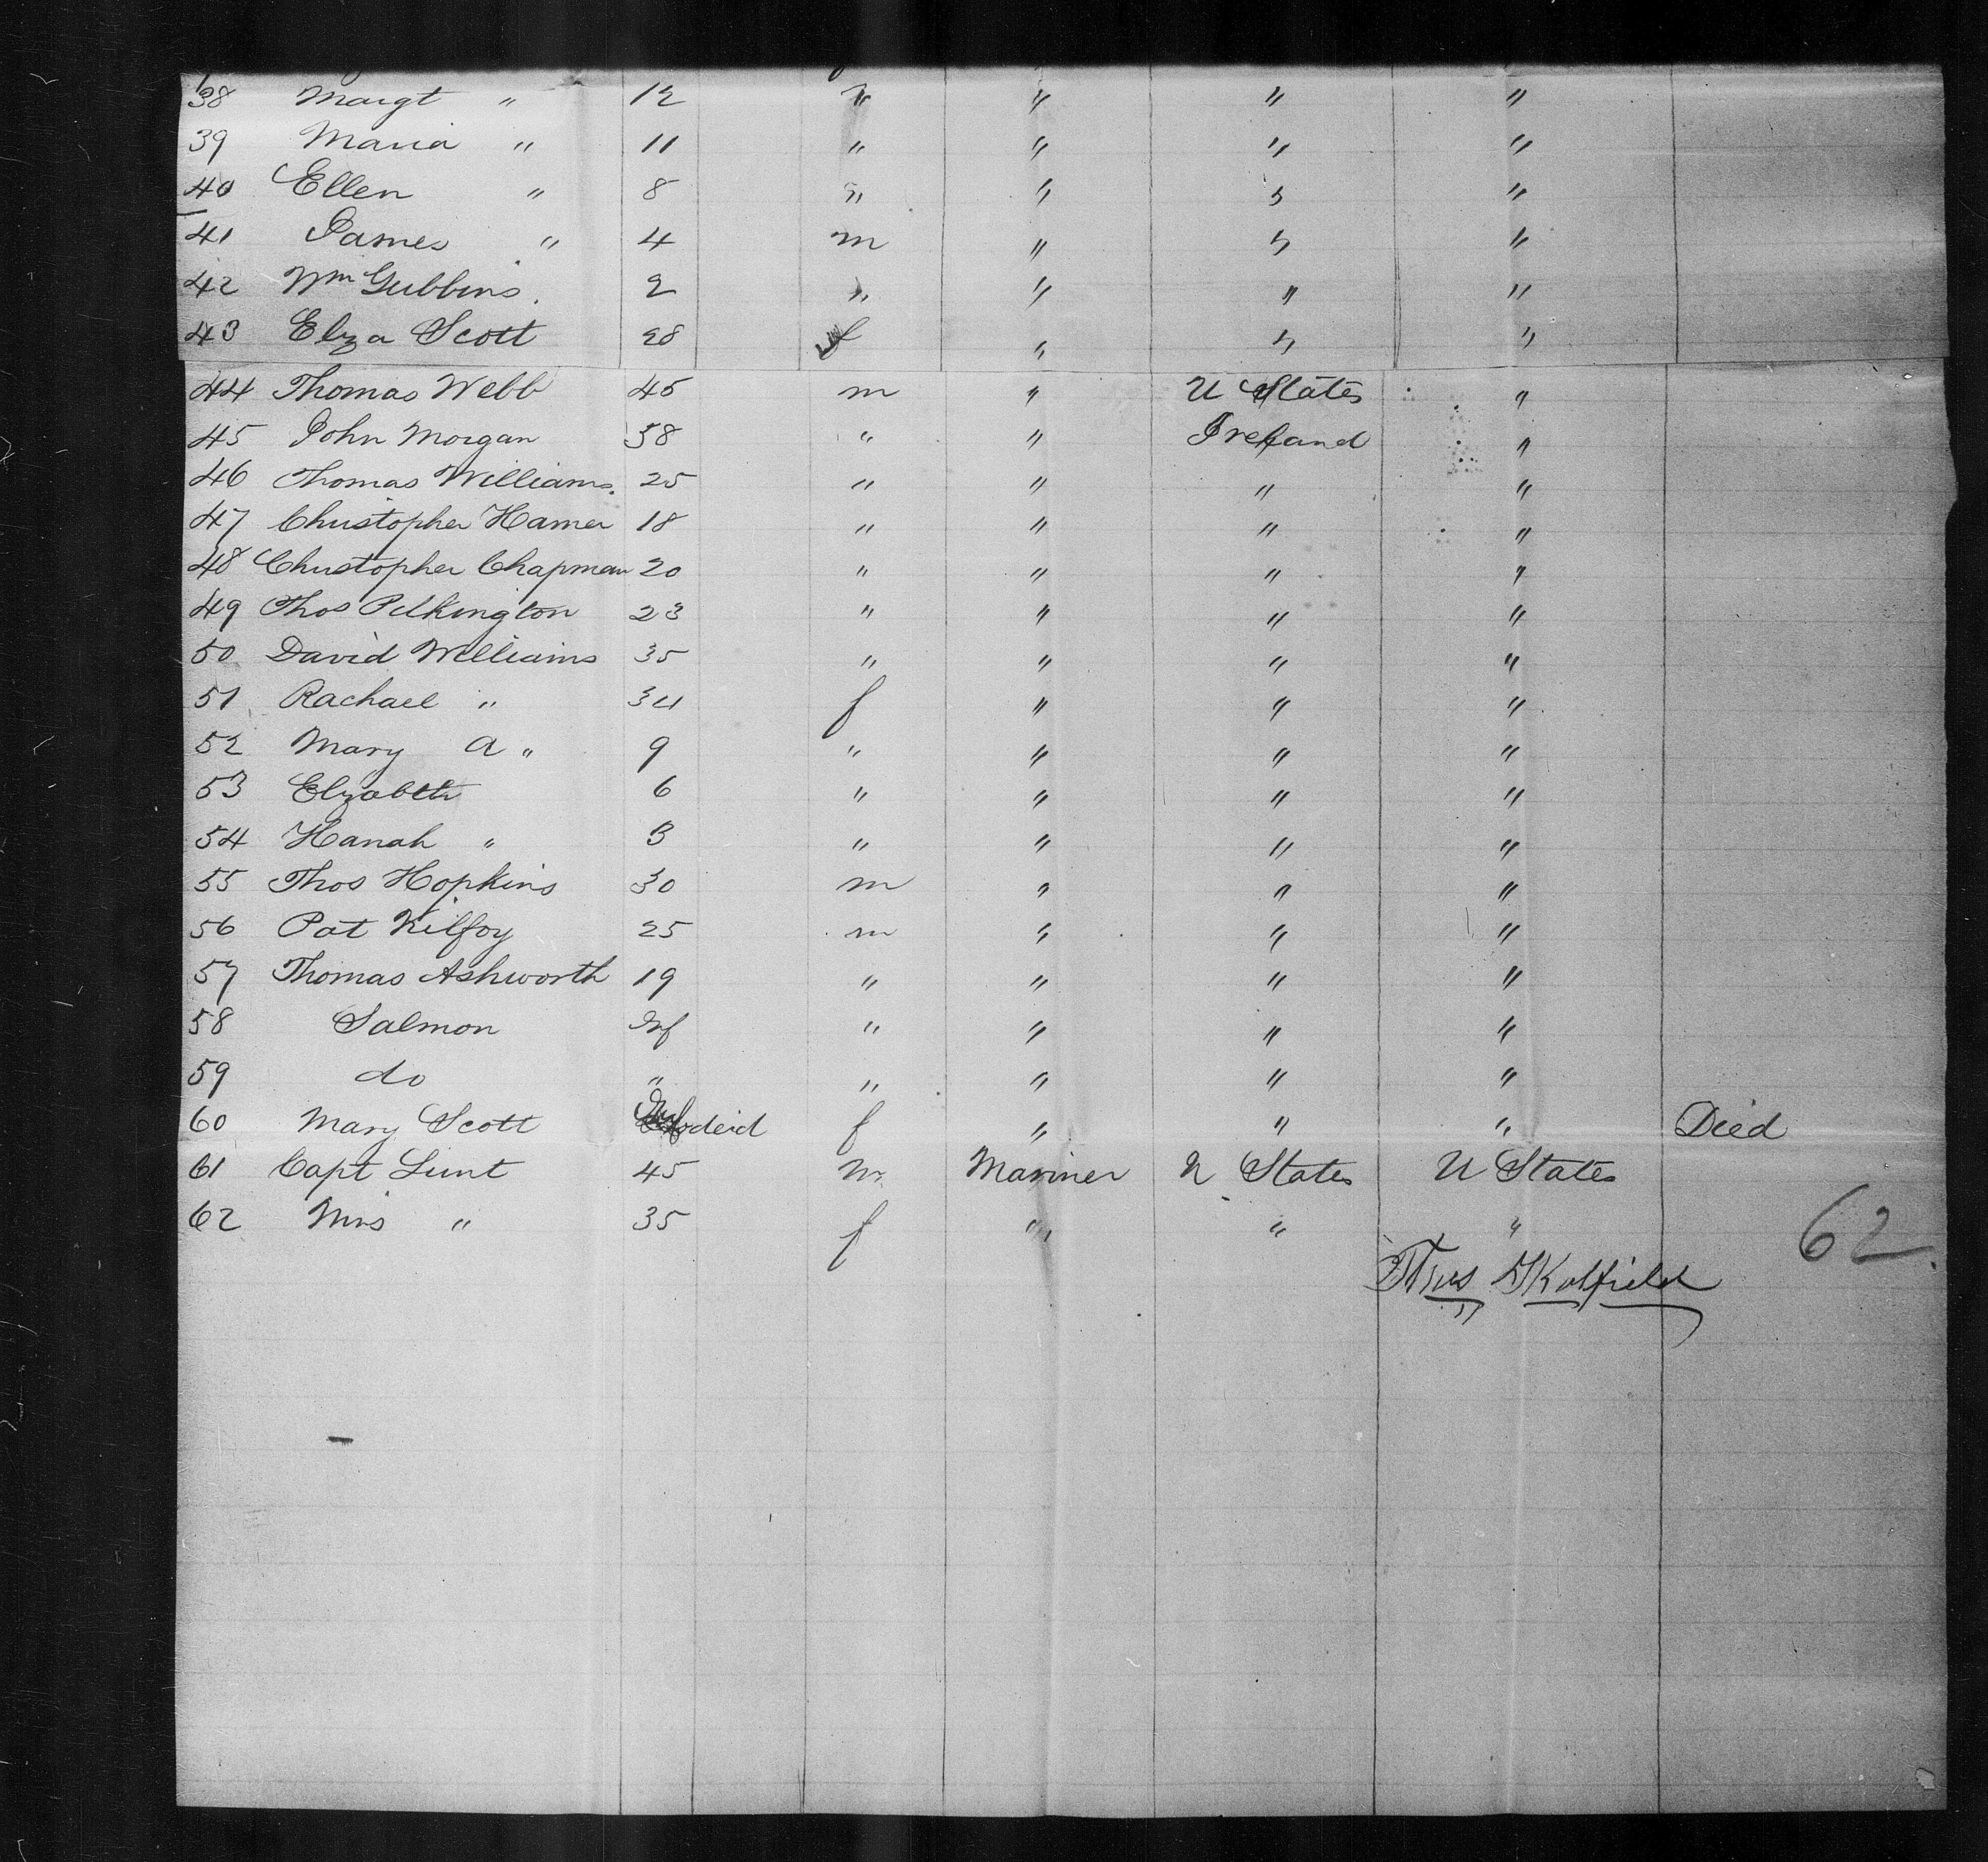 38 Margt " 12 " " " "
39 Maria " 11 " " " "
40 Ellen " 8 " " " "
41 James " 4 m " " "
42 Wm Gubbins. 2 " " " "
43 Elza Scott 28 f " " "
44 Thomas Webb 45 m " U States "
45 John Morgan 38 " " Ireland "
46 Thomas Williams. 25 " " " "
47 Christopher Hamer 18 " " " "
48 Christopher Chapman 20 " " " "
49 Thos Pilkington 23 " " " "
50 David Williams 35 " " " "
51 Rachael " 34 f " " "
52 Mary A " 9 " " " "
53 Elzabeth 6 " " " "
54 Hanah " 3 " " " "
55 Thos Hopkins 30 m " " "
56 Pat Kilfoy 25 m " " "
57 Thomas Ashworth 19 " " " "
58 Salmon Inf " " " "
59 do " " " " "
60 Mary Scott Inf deid f " " " Died
61 Capt Lunt 45 m Mariner U States U States
62 Mrs " 35 f " " "
62
Skolfield